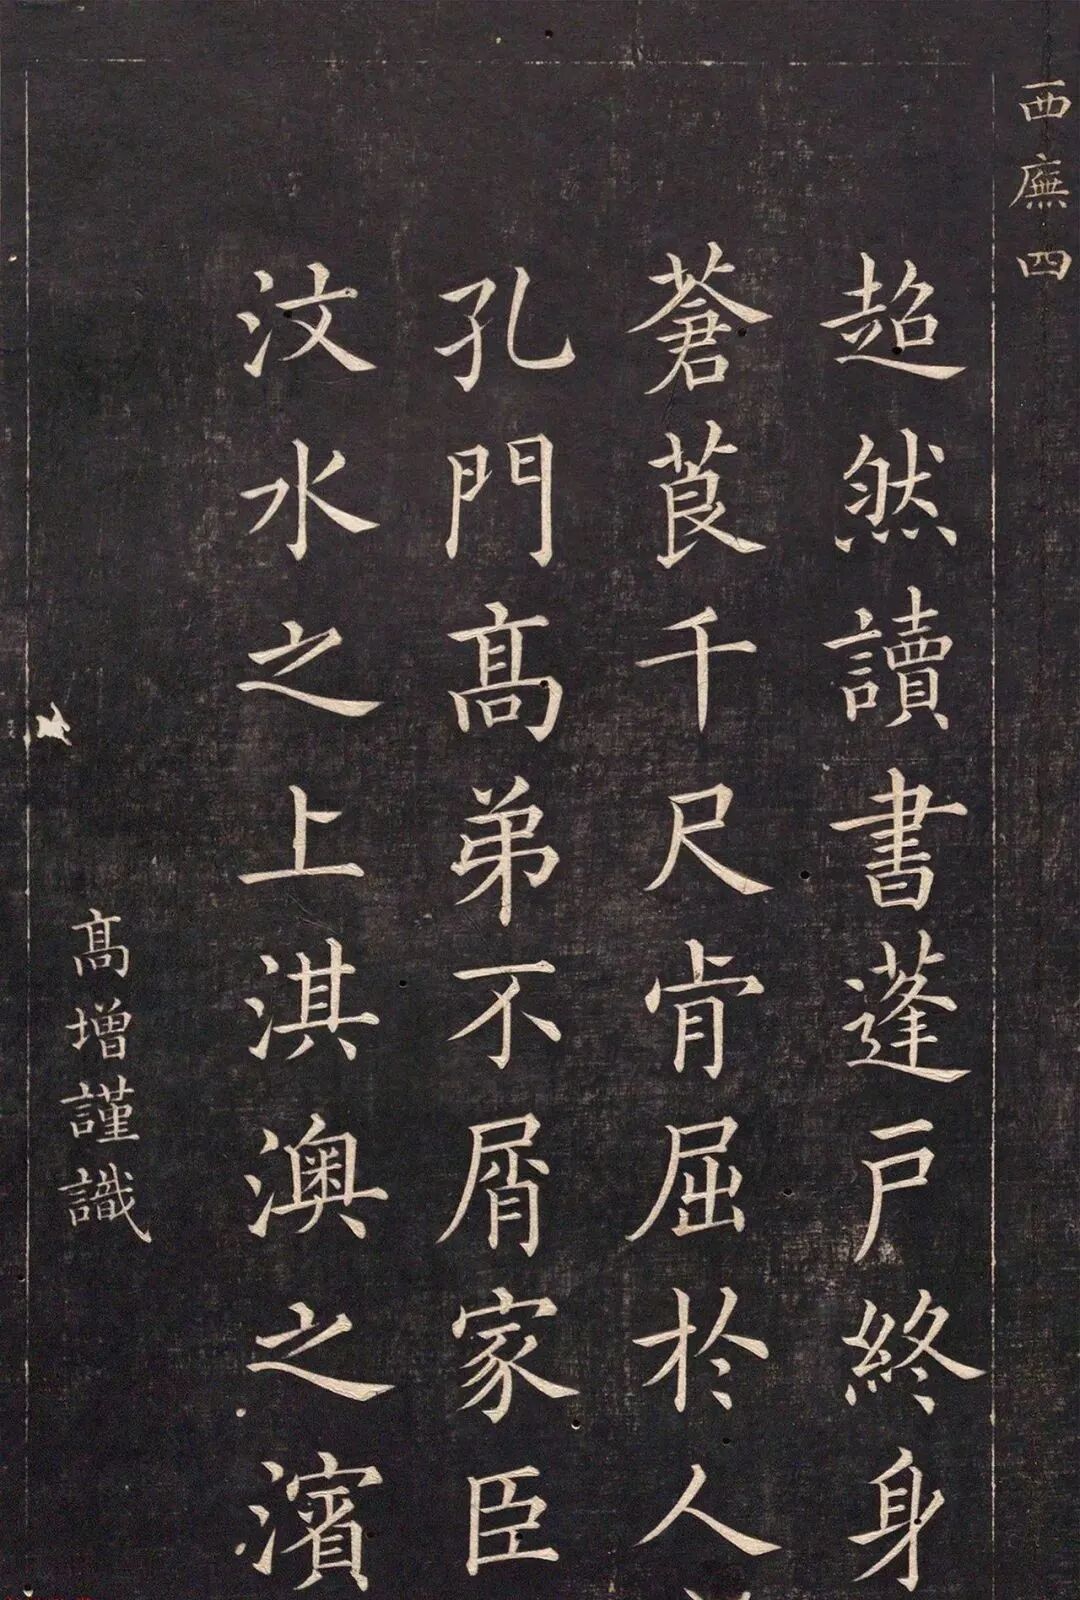 西廡四
超然讀書蓬戸終身
蒼茛千尺肯屈於人
孔門髙弟不屑家臣
汶水之上淇澳之濱
髙增謹識